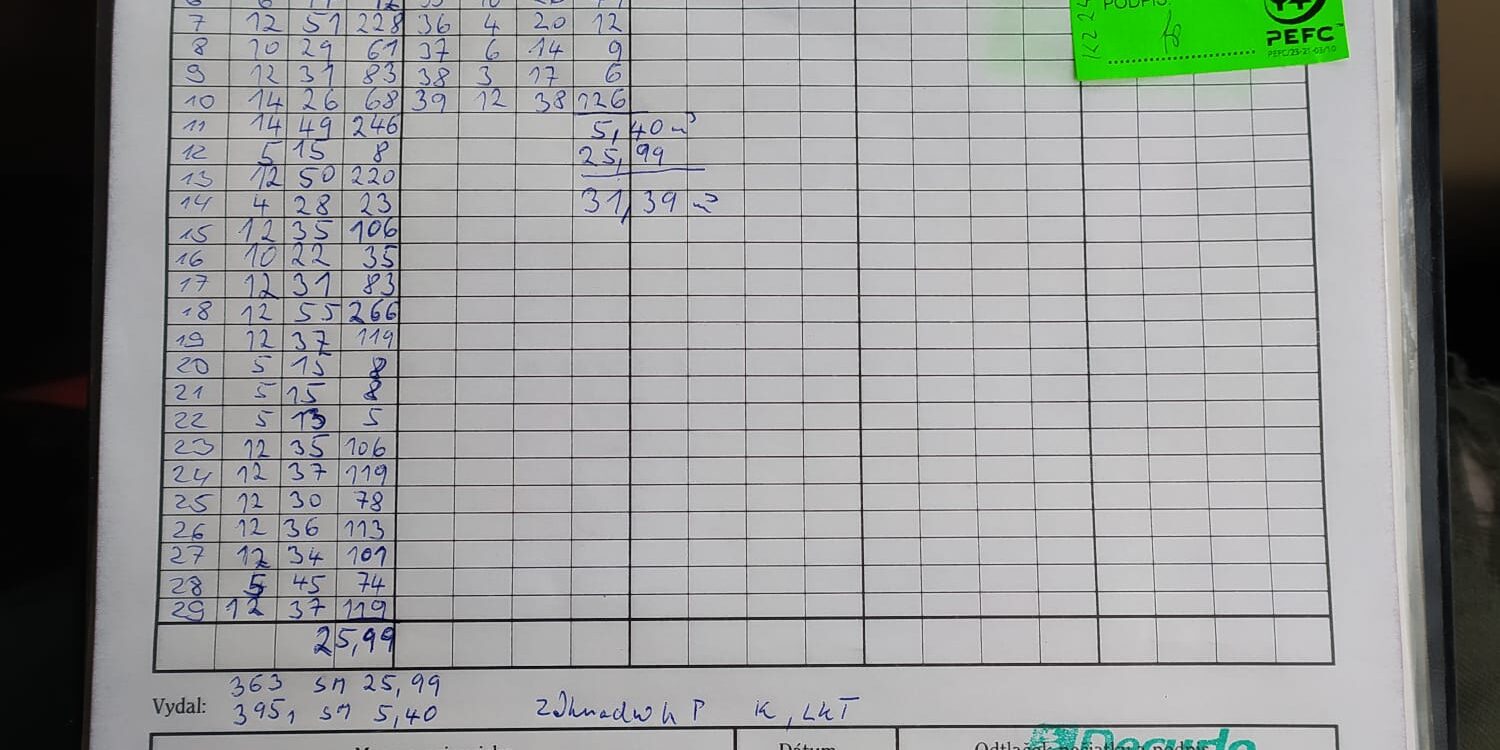 7 12 51 228 36 4 20 12
8 10 29 61 37 6 14 9
9 12 31 83 38 3 17 6
10 14 26 68 39 12 38 126
11 14 49 246 5,40 m³
12 5 15 8 25,99
13 12 50 220
14 4 28 23 31,39 m³
15 12 35 106
16 10 22 35
17 12 31 83
18 12 55 266
19 12 37 119
20 5 15 8
21 5 15 8
22 5 13 5
23 12 35 106
24 12 37 119
25 12 30 78
26 12 36 113
27 12 34 101
28 5 45 74
29 12 37 119
25,99
363 SM 25,99
Vydal: 3951 SM 5,40 P K, LKT
Dátum
PODPIS:
PEFC
PEFC/23-21-03/10